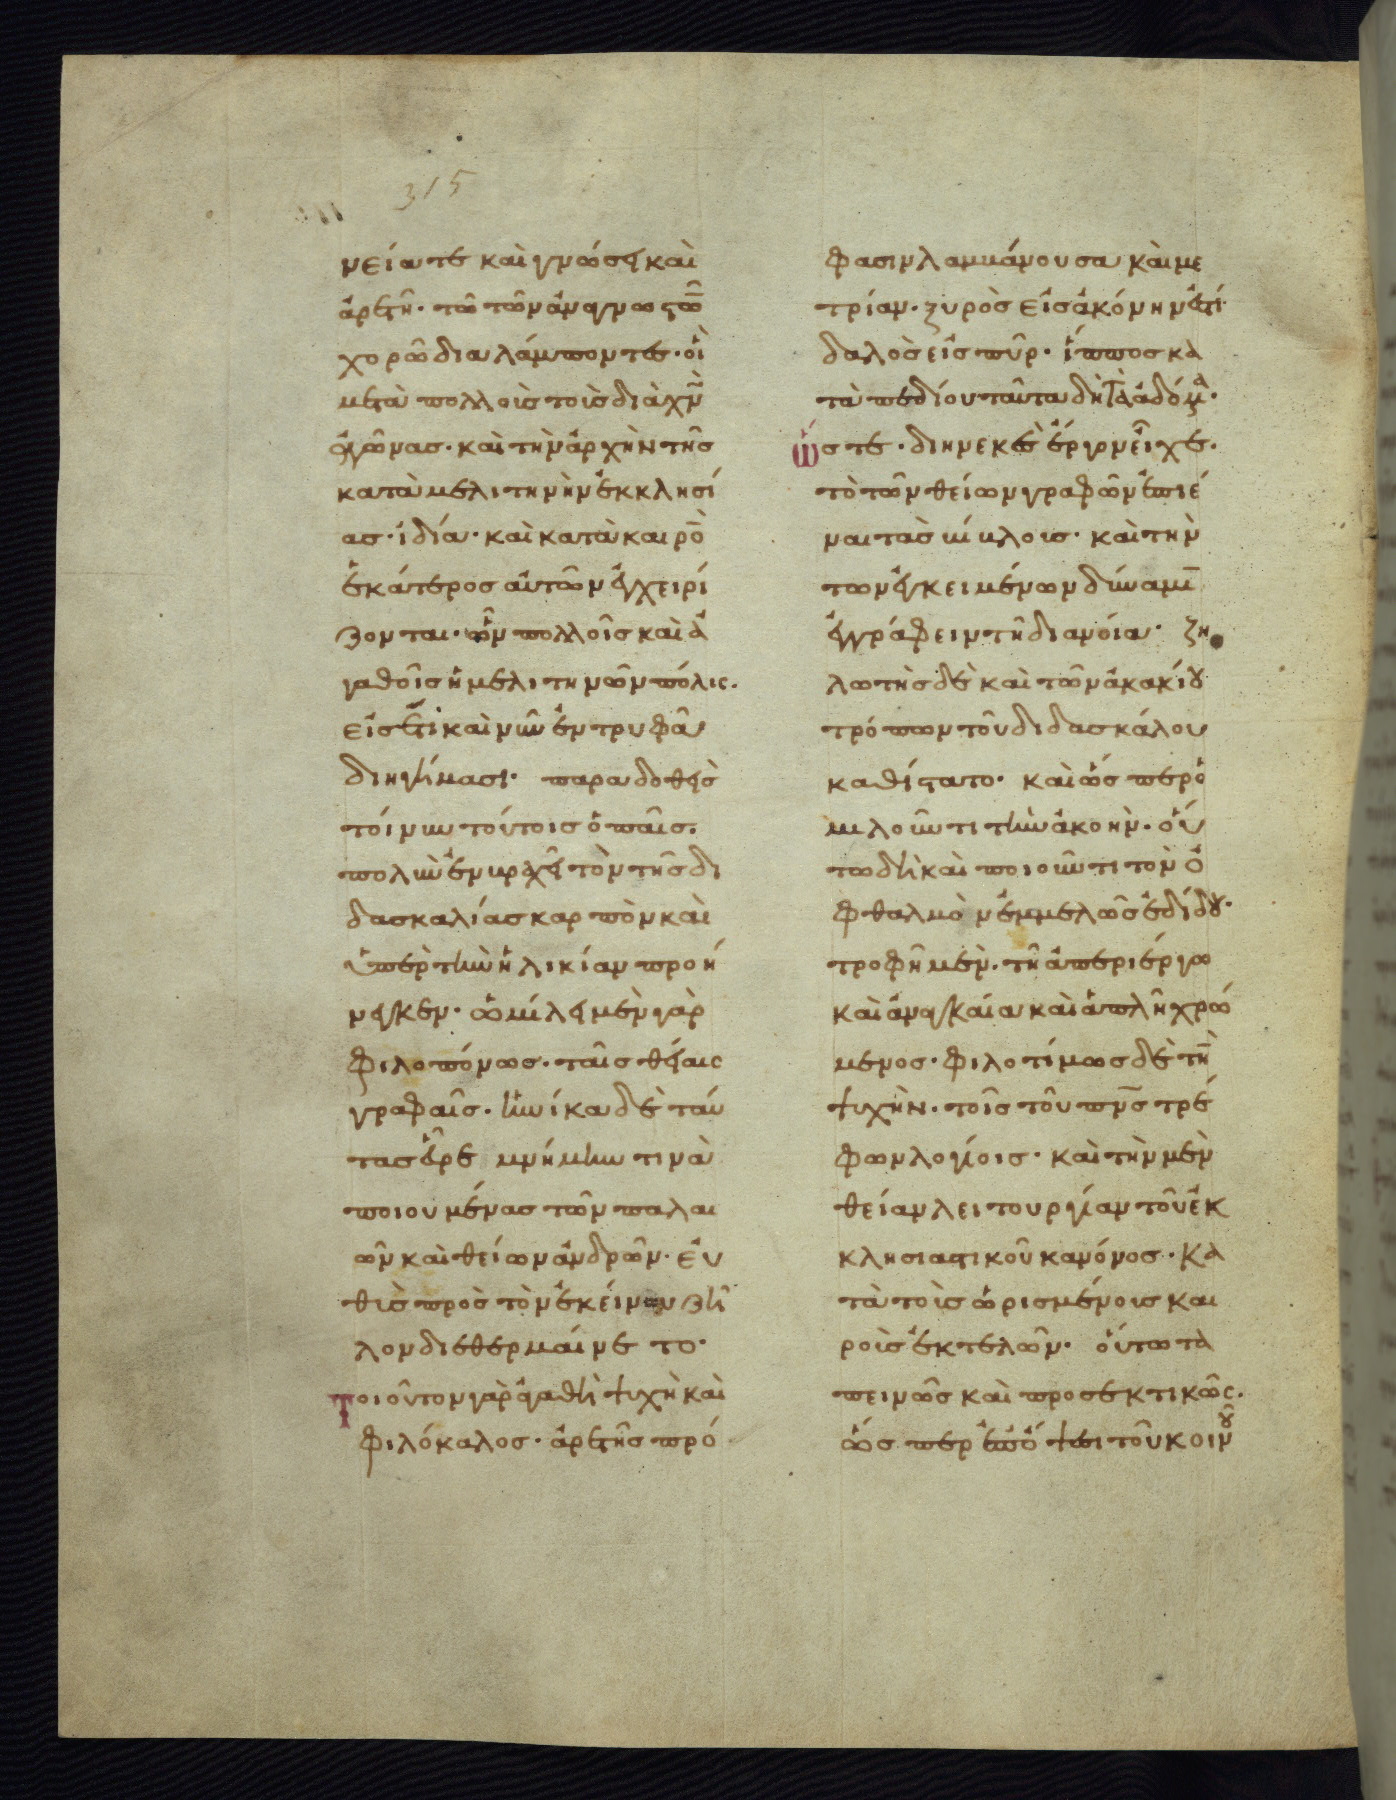 315
νεία τε καὶ γνώσει καὶ
ἀρετῆ· τῶ τῶν ἀναγνωστῶν
χορῶ διαλάμποντες· οἳ
μετὰ πολλοὺς τοὺς διὰ χ̅ν̅
ἀγῶνας· καὶ τὴν ἀρχὴν τῆς
κατὰ μελιτηνὴν ἐκκλησί
ας· ἰδία· καὶ κατὰ καιρὸν
ἑκάτερος αὐτῶν ἐγχειρί
ζονται· ὧν πολλοῖς καὶ ἀ
γαθοῖς ἡ μελιτηνῶν πόλις·
εἰσέτι καὶ νῦν ἐντρυφᾶ
διηγήμασι· παραδοθεὶς
τοίνυν τούτοις ὁ παῖς·
πολὺν ἐν βραχεῖ τὸν τῆς δι
δασκαλίας καρπὸν καὶ
ὑπὲρ τὴν ἡλικίαν προή
νεγκεν· ὡμίλει μὲν γὰρ
φιλοπόνως· ταῖς θείαις
γραφαῖς· ἡνίκα δὲ ταύ
τας εὗρε μνήμην τινὰ
ποιουμένας τῶν παλαι
ῶν καὶ θείων ἀνδρῶν· εὐ
θὺς πρὸς τὸν ἐκείνων ζῆ
λον διεθερμαίνετο·
Τοιοῦτον γὰρ ἀγαθὴ ψυχὴ καὶ
φιλόκαλος· ἀρετῆς πρό
φασιν λαμβάνουσα κἂν με
τρίαν· ξυρὸς εἰς ἀκόνην ἐστί·
δαλὸς εἰς πῦρ· ἵππος κα
τὰ πεδίου ταῦτα δὴ τὰ ἀδόμενα·
Ὥστε· διηνεκὲς ἔργον εἶχε·
τὸ τῶν θείων γραφῶν ἐπιέ
ναι τὰς βίβλους· καὶ τὴν
τῶν ἐγκειμένων δύναμιν
ἐγγράφειν τῆ διανοία· ζη
λωτὴς δὲ καὶ τῶν ἀκακίου
τρόπων τοῦ διδασκάλου
καθίστατο· καὶ ὥσπερ ὁ
μιλοῦντι τὴν ἀκοὴν· οὕ
τω δὴ καὶ ποιοῦντι τὸν ὀ
φθαλμὸν ἐμμελῶς ἐδίδου·
τροφῆ μὲν· τῆ ἀπεριέργω
καὶ ἀναγκαία καὶ ἁπλῆ χρώ
μενος· φιλοτίμως δὲ τὴν
ψυχὴν· τοῖς τοῦ π̅ν̅ς̅ τρέ
φων λογίοις· καὶ τὴν μὲν
θείαν λειτουργίαν τοῦ ἐκ
κλησιαστικοῦ κανόνος· κα
τὰ τοὺς ὡρισμένους και
ροὺς ἐκτελῶν· οὕτω τα
πεινῶς καὶ προσεκτικῶς·
ὥσπερ ἐπ' ὄψει τοῦ κοινοῦ